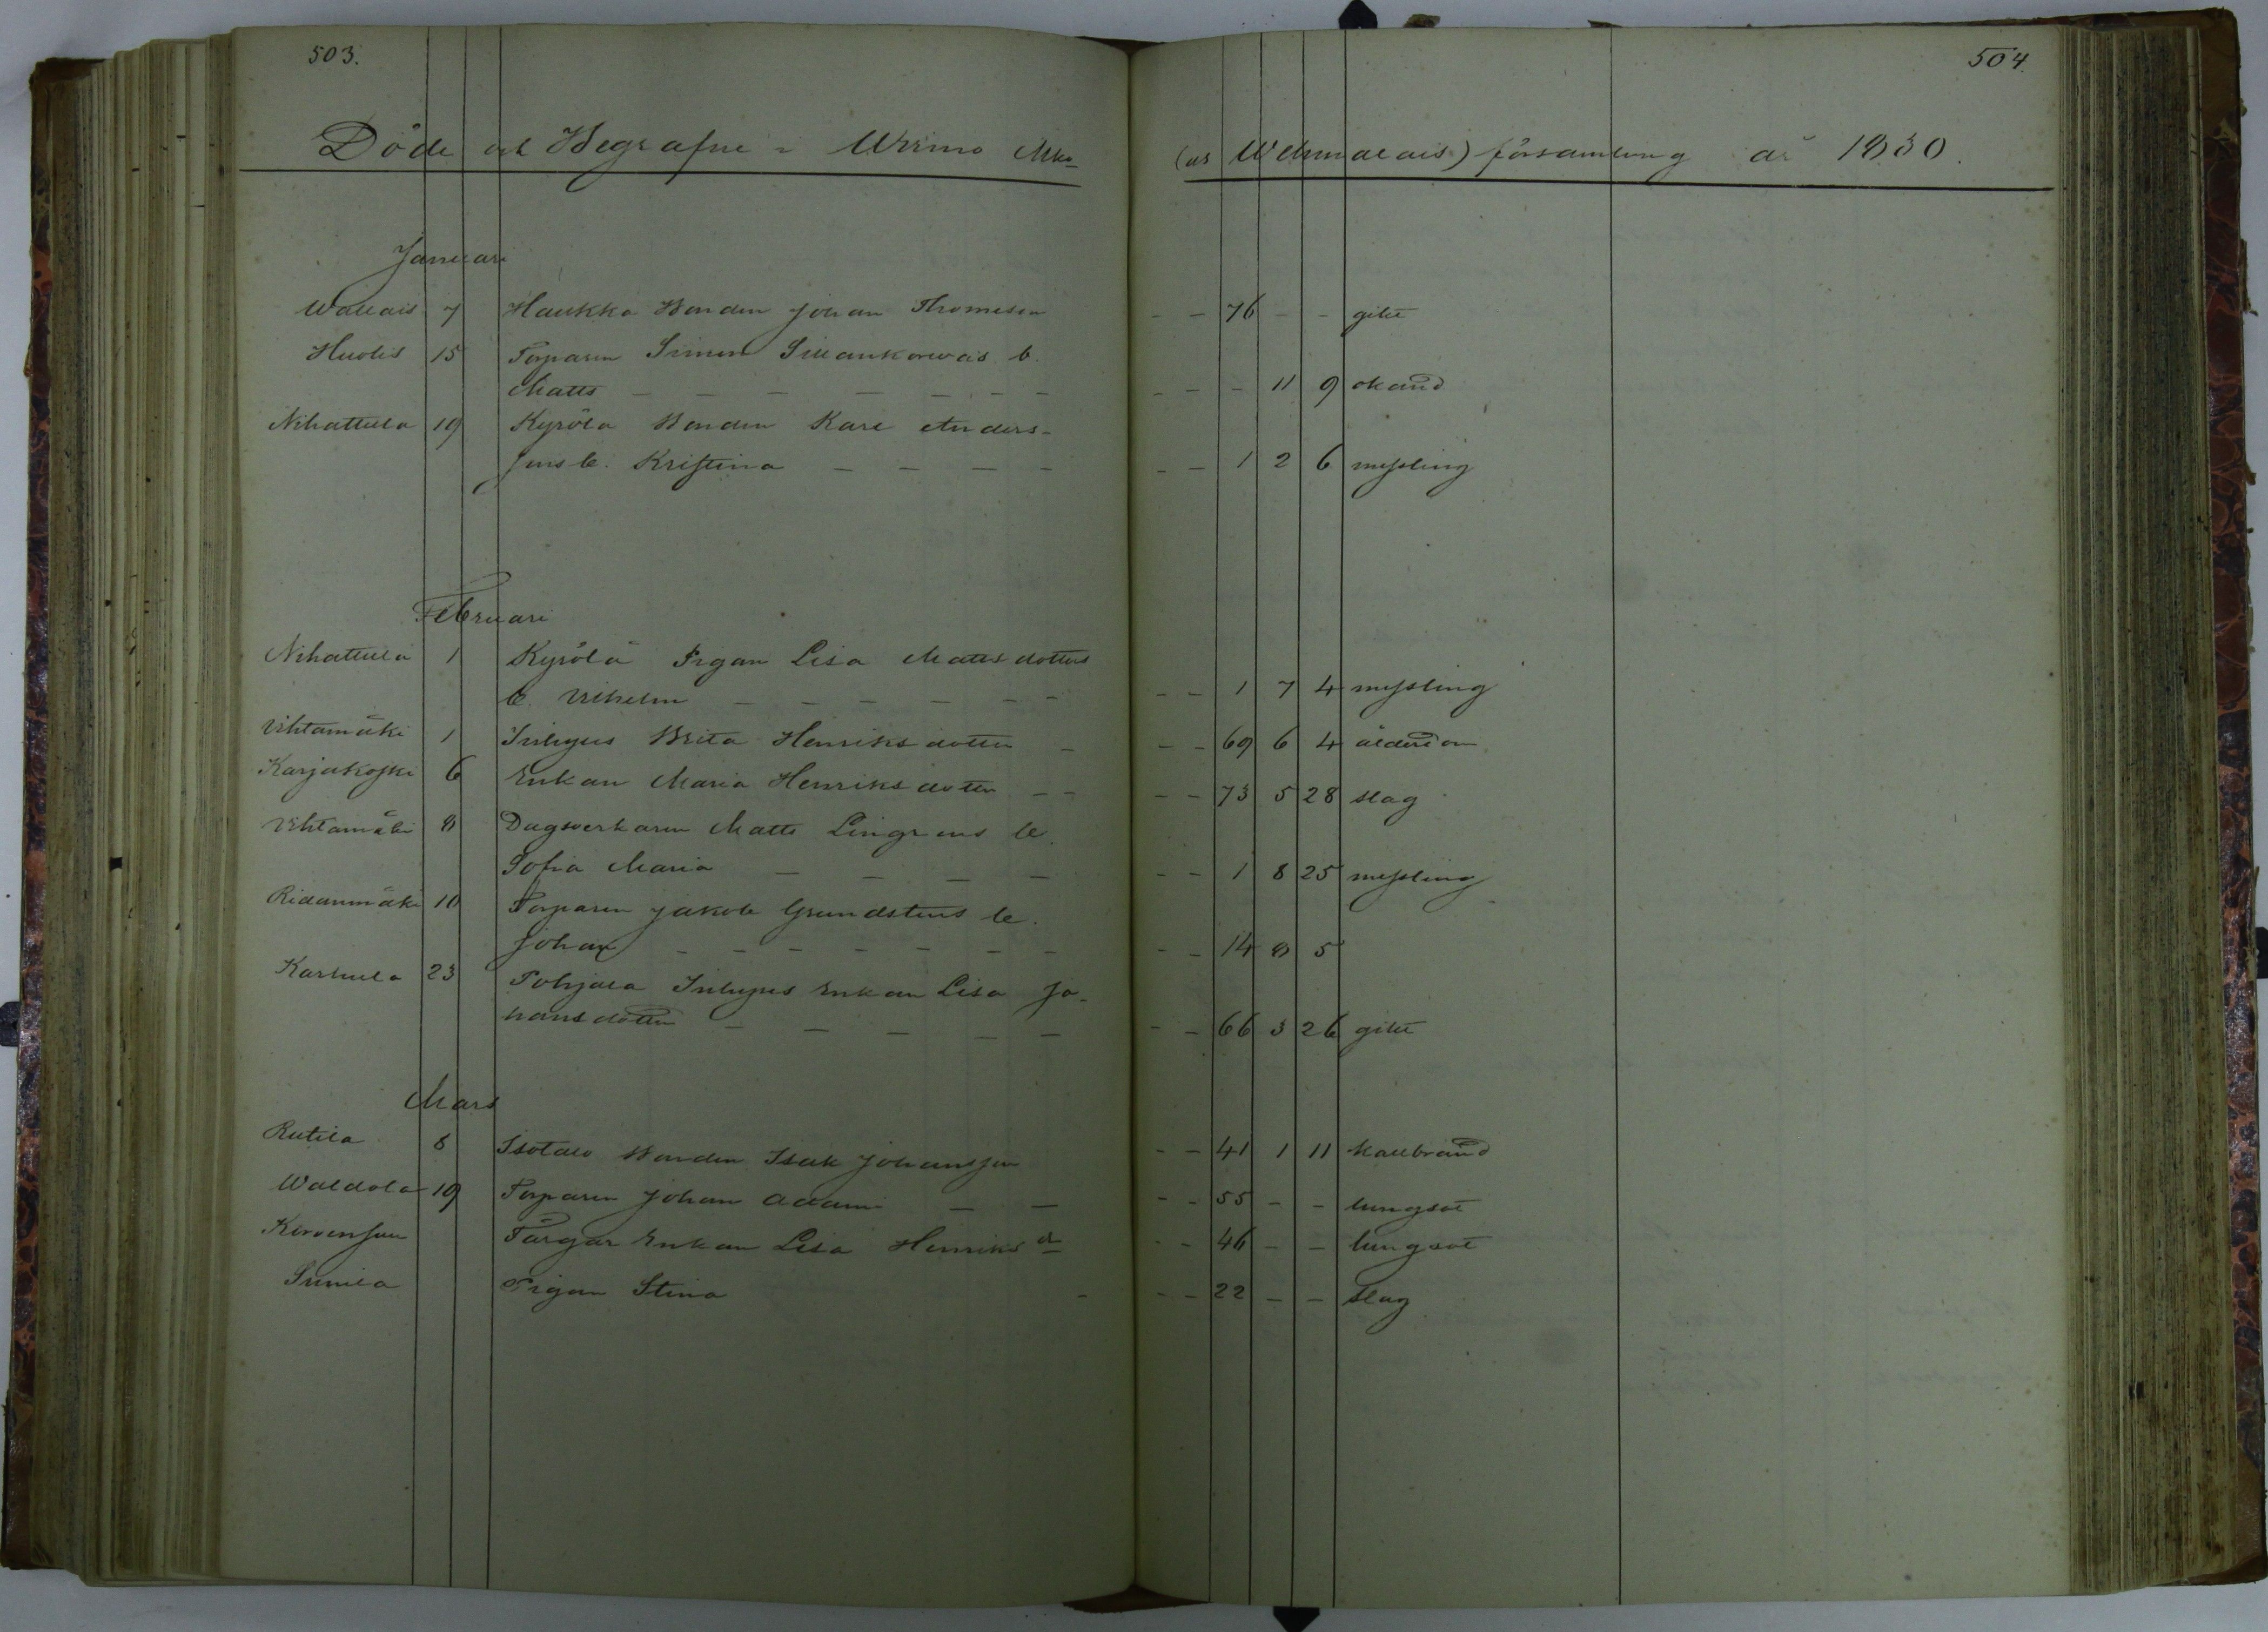 503.
504.
Döde och Begrafne i Wirmo Mko
(as Wehmalais) församling år 1830.
Januari
Wallais 7 Haukka Bonden Johan Thomeson - - 76 - - gikt
Huolis 15 Torparen Simon Sillankorwas b.
Matts - - - - - - - - - 11 9 okänd
Nihattula 19 Kyrölä Bonden Karl Anders-
sons b. Kristina - - - - - - 1 2 6 messling
Februari
Nihattula 1 Kyrölä Pigan Lisa Mattsdotters
b. Vilhelm - - - - - - - 1 7 4 messling
Vihtamäki 1 Inhyses Brita Henriksdotter - - - 69 6 4 ålderdom
Karjakoski 6 Enkan Maria Henriksdotter - - - - 73 5 28 slag
Vihtamäki 8 Dagsverkaren Matts Lingrens b.
Sofia Maria - - - - - - 1 8 25 messling
Ridanmäki 10 Torparen Jakob Grundstens b.
Johan - - - - - - - - 14 8 5
Karhula 23 Pohjala Inhyses Enkan Lisa Jo-
hansdotter - - - - - - - 66 3 26 gikt
Mars
Rutila 8 Isotalo Bonden Isak Johansson - - 41 1 11 kallbrand
Waldola 19 Torparen Johan Adam - - - - 55 - - lungsot
Korvensuu Färgar Enkan Lisa Henriks dr - - 46 - - lungsot
Sunila Pigan Stina - - - 22 - - slag